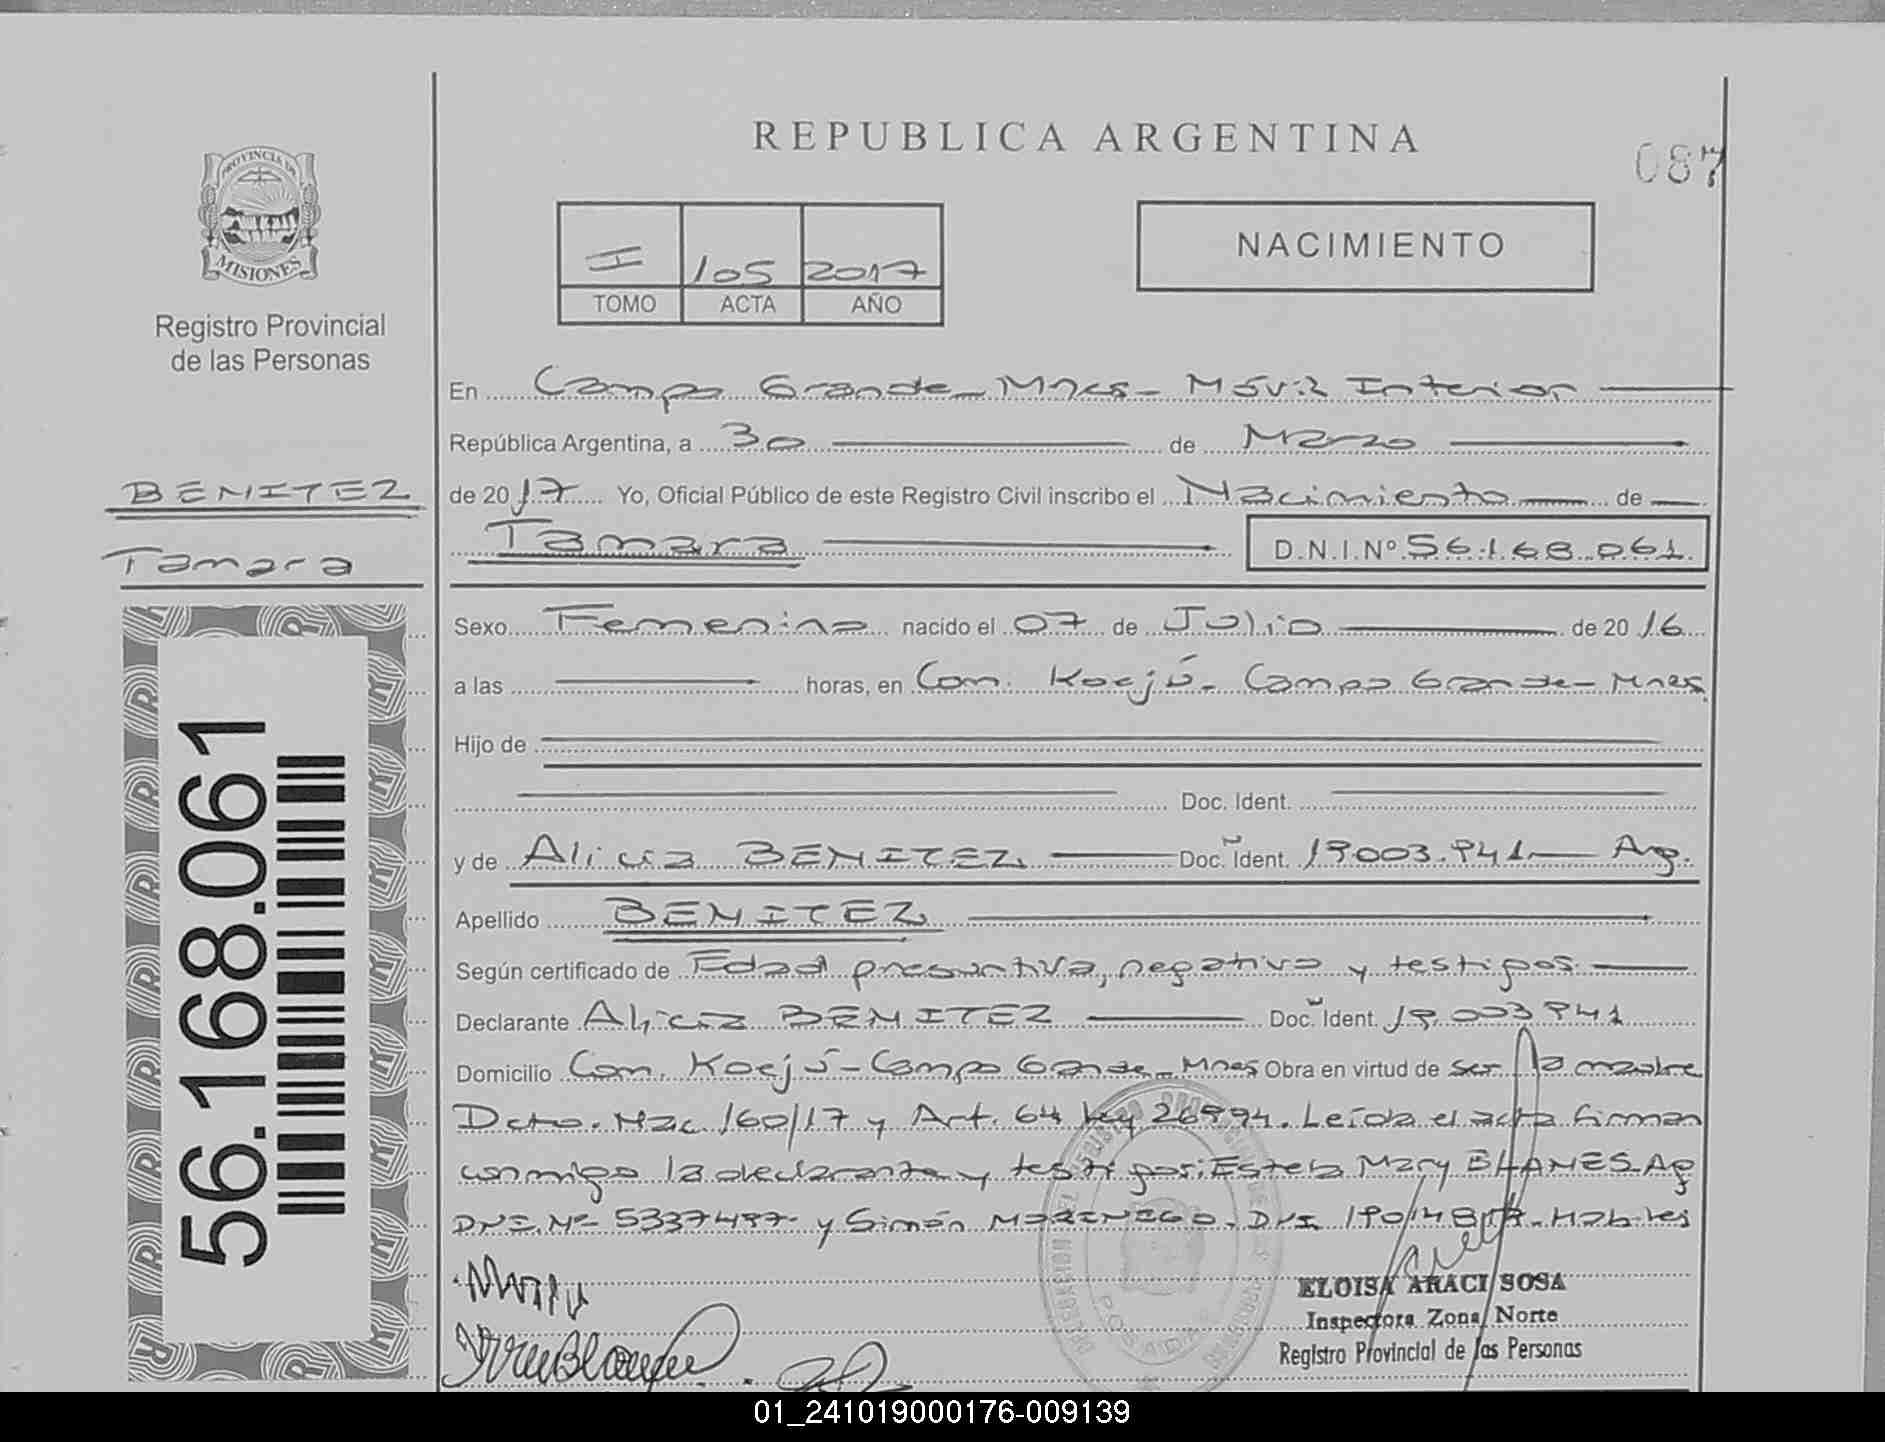 REPUBLICA ARGENTINA
087
PROVINCIA DE
MISIONES
Registro Provincial
de las Personas
I 105 2017
TOMO ACTA AÑO
NACIMIENTO
En Campo Grande - Mnes - Móvil Interior
República Argentina, a 30 de Marzo
BENITEZ
Tamara
de 2017 Yo, Oficial Público de este Registro Civil inscribo el Nacimiento de
Tamara D.N.I.Nº 56.168.061.
Sexo Femenino nacido el 07 de Julio de 2016
a las horas, en Com. Koejú - Campo Grande - Mnes
Hijo de
Doc. Ident.
y de Alicia BENITEZ Doc. Ident. 19003.941 Arg.
Apellido BENITEZ
Según certificado de Edad presuntiva, negativo y testigos
Declarante Alicia BENITEZ Doc. Ident. 19.003 941
Domicilio Com. Koejú - Campo Grande - Mnes Obra en virtud de ser la madre
Dcto. Nac. 160/17 y Art. 64 Ley 26994. Leída el acta firman
conmigo la declarante y testigos: Estela Mary BLANES Ag
DNI. Nº 5337497 y Simón DNI Habiles
56.168.061
ELOISA ARACI SOSA
Inspectora Zona Norte
Registro Provincial de las Personas
POSADAS
01_241019000176-009139